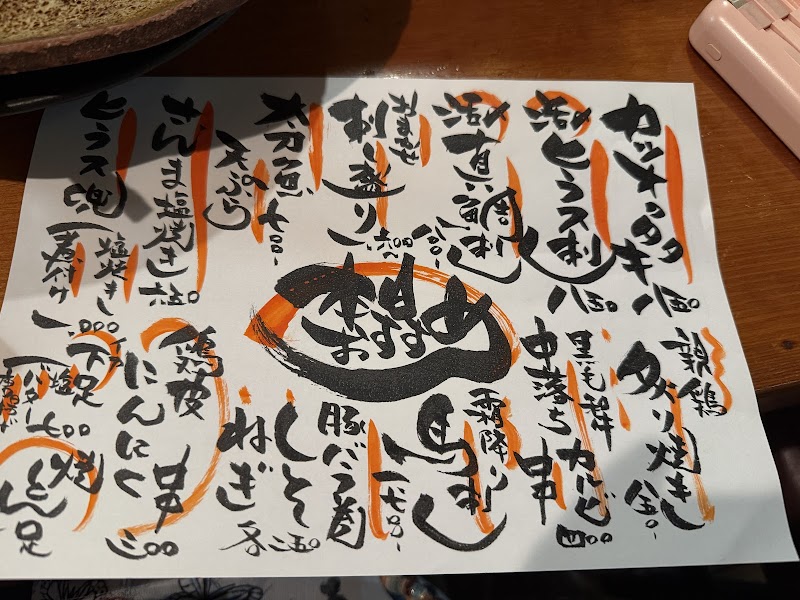 カツオのタタキ 八五〇
活〆ヒラス刺し 八五〇
活〆真鯛刺し 八五〇-
おまかせ
刺し盛り 一、六〇〇
太刀魚 七〇〇-
天ぷら
さんま塩焼き 五五〇
ヒラス兜
塩焼き
煮付け
一、〇〇〇
本日
おすすめ
親鶏
炙り焼き 八五〇-
黒毛和牛カルビ
中落ち串 四〇〇
霜降り
馬刺し
一七〇〇-
豚バラ巻
しそ
ねぎ
各二五〇
鶏皮
にんにく串
三〇〇
イカ
下足焼
塩
バター
七〇〇
とん足